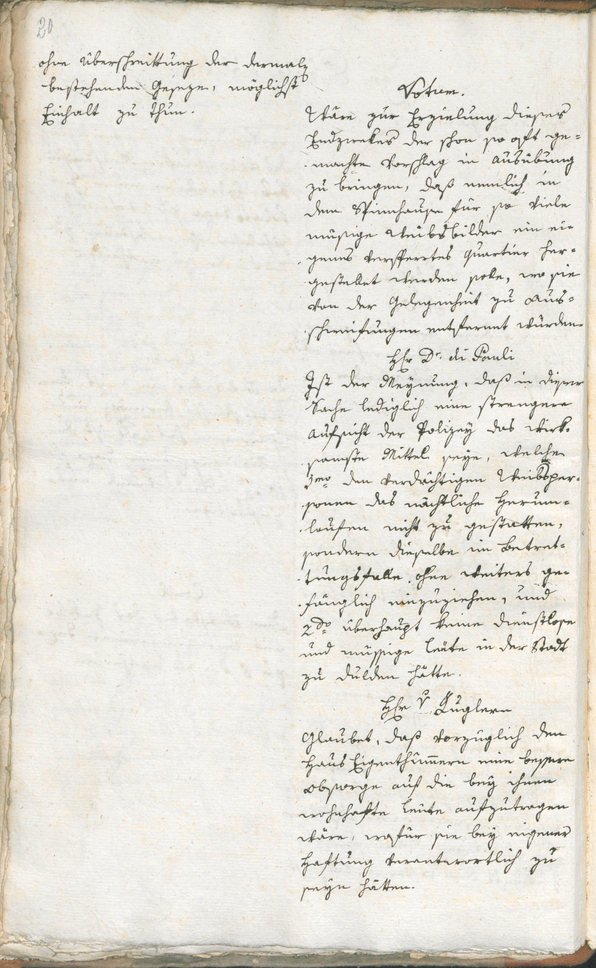 20
ohne Überschreittung der dermals
bestehenden Geseze, möglichst
Einhalt zu thun.
Votum.
Wäre zur Erzielung dieses
Endzwekes der schon so oft ge-
machte Vorschlag in Ausübung
zu bringen, daß nemlich in
dem Spinnhause für so viele
müsige Weibsbilder ein ei-
genes versperrtes Quartier her-
gestellet werden solle, wo sie
von der Gelegenheit zu Aus-
schweifungen entfernet würden.
Hr Dr. di Pauli
Ist der Meynung, daß in dieser
Sache lediglich eine strengere
Aufsicht der Polizey das wirk-
samste Mittel seye, welche
1mo den verdächtigen Weibsper-
sonen das nächtliche Herum-
laufen nicht zu gestatten,
sondern dieselbe im Betret-
tungsfalle ohne weiters ge-
fänglich einzuziehen, und
2do überhaupt keine dienstlose
und müssige Leute in der Stadt
zu dulden hätte.
Hr v. Kuglern
Glaubet, daß vorzüglich den
Haus Eigenthümmern eine bessere
Obsorge auf die bey ihnen
wohnhafte Leute aufzutragen
wäre, wofür sie bey eigener
Haftung verantwortlich zu
seyn hätten.